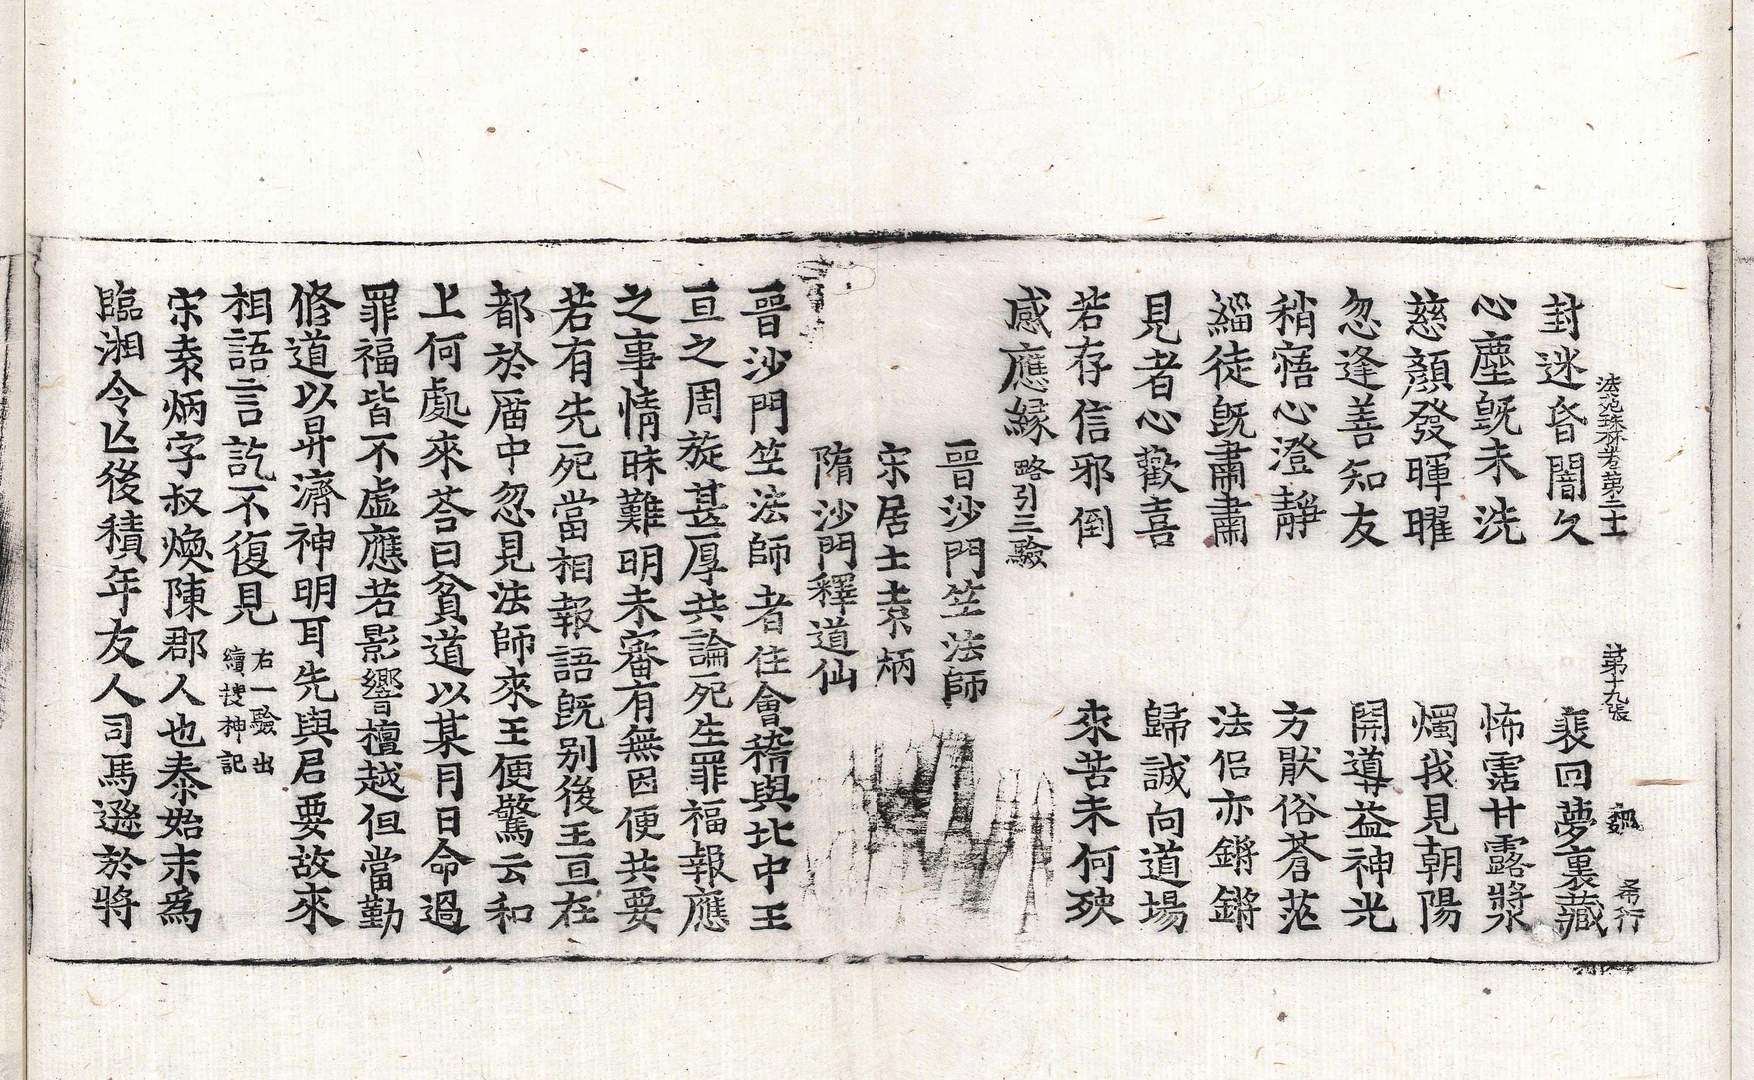 法苑珠林卷第二十 第十九張 希行
封迷昏闇久 裴回夢裏藏
心塵旣未洗 怖霑甘露漿
慈顏發暉曜 燭我見朝陽
忽逢善知友 開導益神光
稍寤心澄靜 方猒俗蒼茫
緇徒旣肅肅 法侶亦鏘鏘
見者心歡喜 歸誠向道場
若存信邪倒 來苦未何殃
感應緣 略引三驗
晉沙門竺法師
宋居士袁炳
隋沙門釋道仙
晉沙門竺法師者住會稽與北中王
亘之周旋甚厚共論死生罪福報應
之事情昧難明未審有無因便共要
若有先死當相報語旣別後王亘在
都於厝中忽見法師來王便驚云和
上何處來荅曰貧道以某月日命過
罪福皆不虛應若影響檀越但當勤
修道以昇濟神明耳先與君要故來
相語言訖不復見 右一驗出續搜神記
宋袁炳字叔煥陳郡人也泰始末爲
臨湘令亡後積年友人司馬遜於將